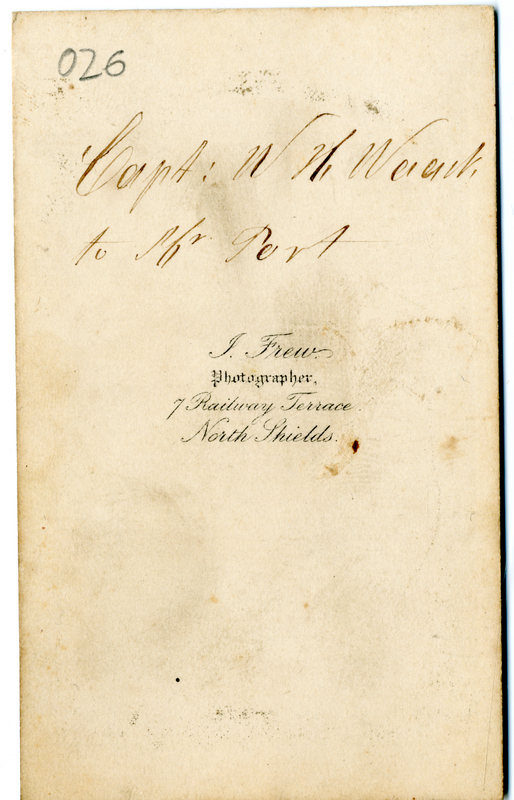 026
Capt: W H
to Mr Port
J. Frew.
Photographer,
7 Railway Terrace.
North Shields.